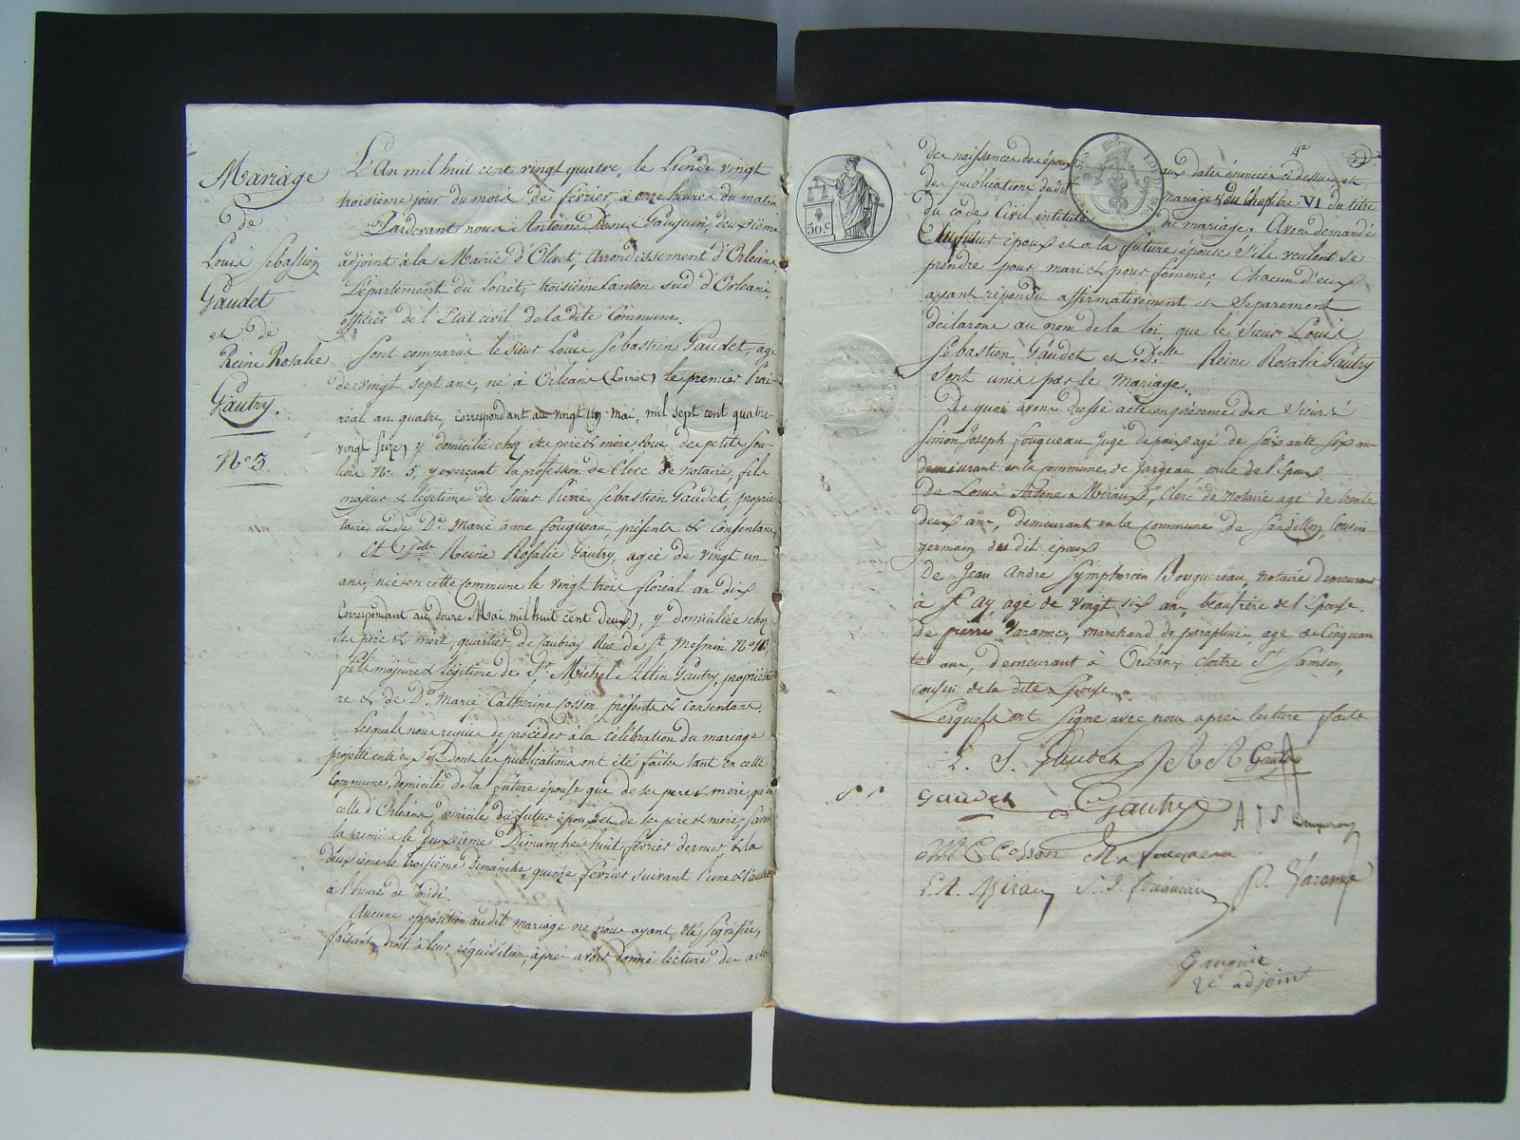 Mariage
de
Louis Sebastien
Gaudet
et de
Reine Rosalie
Gautry.
N° 3.
L'An mil huit cent vingt quatre, le Lundi vingt
troisieme jour du mois de fevrier, à onze heures du matin
Pardevant nous Antoine Denis Gauguin, deuxième
adjoint à la Mairie d'Olivet, Arrondissement d'Orléans
Département du Loiret, troisième Canton sud d'Orléans,
officier de l'Etat civil de la dite Commune.
Sont comparus le sieur Louis Sebastien Gaudet, agé
de vingt sept ans, né à Orléans (Loiret) le premier Prai-
réal an quatre, correspondant au vingt mai, mil sept cent quatre-
vingt seize, y domicilié chez ses pere et mère, rue des petits sou-
liers N° 5, y exerçant la profession de Clerc de notaire, fils
majeur et légitime de sieur Pierre Sébastien Gaudet, proprié-
taire et de De Marie Anne Fouqueau, présents et consentans
Et Delle Reine Rosalie Gautry, agée de vingt un
ans, née en cette Commune le vingt trois floréal an dix
(Correspondant au douze Mai mil huit cent deux), y domiciliée chez
ses père et mère, quartier de Rue de St Mesmin N°
fille majeure et légitime de Sr Michel Altin Gautry, propriétai-
re et de De Marie Catherine Cosson, présents et consentans.
Lesquels nous requis de procéder à la célébration du mariage
projetté entre eux et dont les publications ont été faites tant en cette
Commune, domicile de la future épouse que de ses pere et mère, qu'en
celle d'Orléans, domicile du futur époux et de ses père et mère, savoir
la première le deuxième Dimanche huit février dernier et la
deuxième le troisième Dimanche quinze fevrier suivant l'une et l'autre
à l'heure de midi.
Aucune opposition audit mariage ne nous ayant été signifiée,
faisant droit à leur réquisition, après avoir donné lecture des actes
4e
50c
des naissances des époux aux dates énoncées ci dessus et
des publications dudit mariage et du Chapitre VI du titre
du code Civil intitulé du mariage, Avons demandé
au futur époux et à la future épouse s'ils veulent se
prendre pour mari et pour femme, Chacun d'eux
ayant répondu affirmativement et Séparément
déclarons au nom de la loi que le sieur Louis
Sebastien Gaudet et Delle Reine Rosalie Gautry
sont unis par le mariage.
De quoi avons dressé acte en présence des sieurs
Simon Joseph Fouqueau juge de paix agé de soixante six ans
demeurant en la commune de Jargeau oncle de l'époux
De Louis Antoine Miraux, Clerc de notaire agé de trente
deux ans, demeurant en la Commune de Sandillon, Cousin
germain du dit époux
De Jean André Symphorien notaire demeurant
à St Ay, agé de vingt six ans, beaufrère de l'épouse.
De pierre marchand de parapluies, agé de Cinquan
te ans, demeurant à Orléans, cloitre St Samson,
cousin de la dite épouse.
Lesquels ont signé avec nous après lecture faite
L. S. Gaudet R R Gautry
Gaudet Gautry
M C Cosson fouqueau
L. A. Miraux S. J. fouqueau P.
Gauguin
2e adjoint